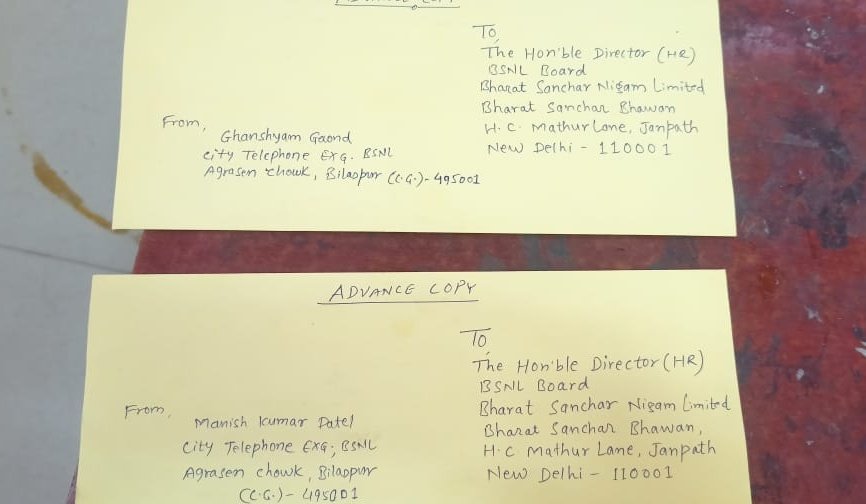 To,
The Hon'ble Director (HR)
BSNL Board
Bharat Sanchar Nigam Limited
Bharat Sanchar Bhawan
H. C. Mathur Lane, Janpath
New Delhi - 110001
From,
Ghanshyam Gaond
City Telephone Exg. BSNL
Agrasen Chowk, Bilaspur (C.G.)- 495001
ADVANCE COPY
To,
The Hon'ble Director (HR)
BSNL Board
Bharat Sanchar Nigam Limited
Bharat Sanchar Bhawan,
H.C Mathur Lane, Janpath
New Delhi - 110001
From,
Manish Kumar Patel
City Telephone Exg; BSNL
Agrasen chowk, Bilaspur
(C.G.)- 495001